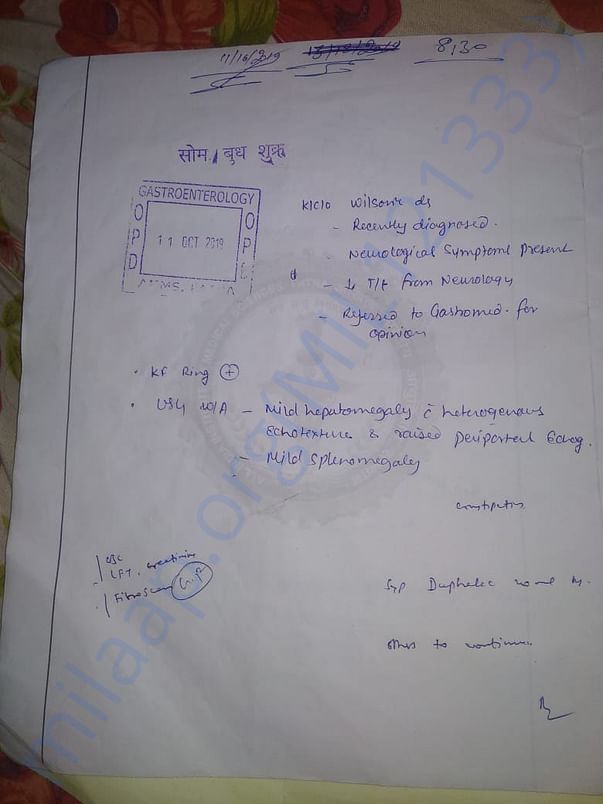 11/10/2019 8:30
सोम / बुध शुक्र
GASTROENTEROLOGY
OPD
11 OCT 2019
K/C/O Wilson's ds
- Recently diagnosed.
- Neurological Symptoms Present
- ↓ T/t from Neurology
- Referred to Gastromed. for
opinion
• KF Ring ⊕
• USG W/A - Mild hepatomegaly c̄ heterogenous
Echotexture & raised Periportal Echog.
- Mild Splenomegaly
constipation
CBC
LFT, creatinine
Fibroscan
Syp Duphalac
others to continue.
milaap.org/MIL